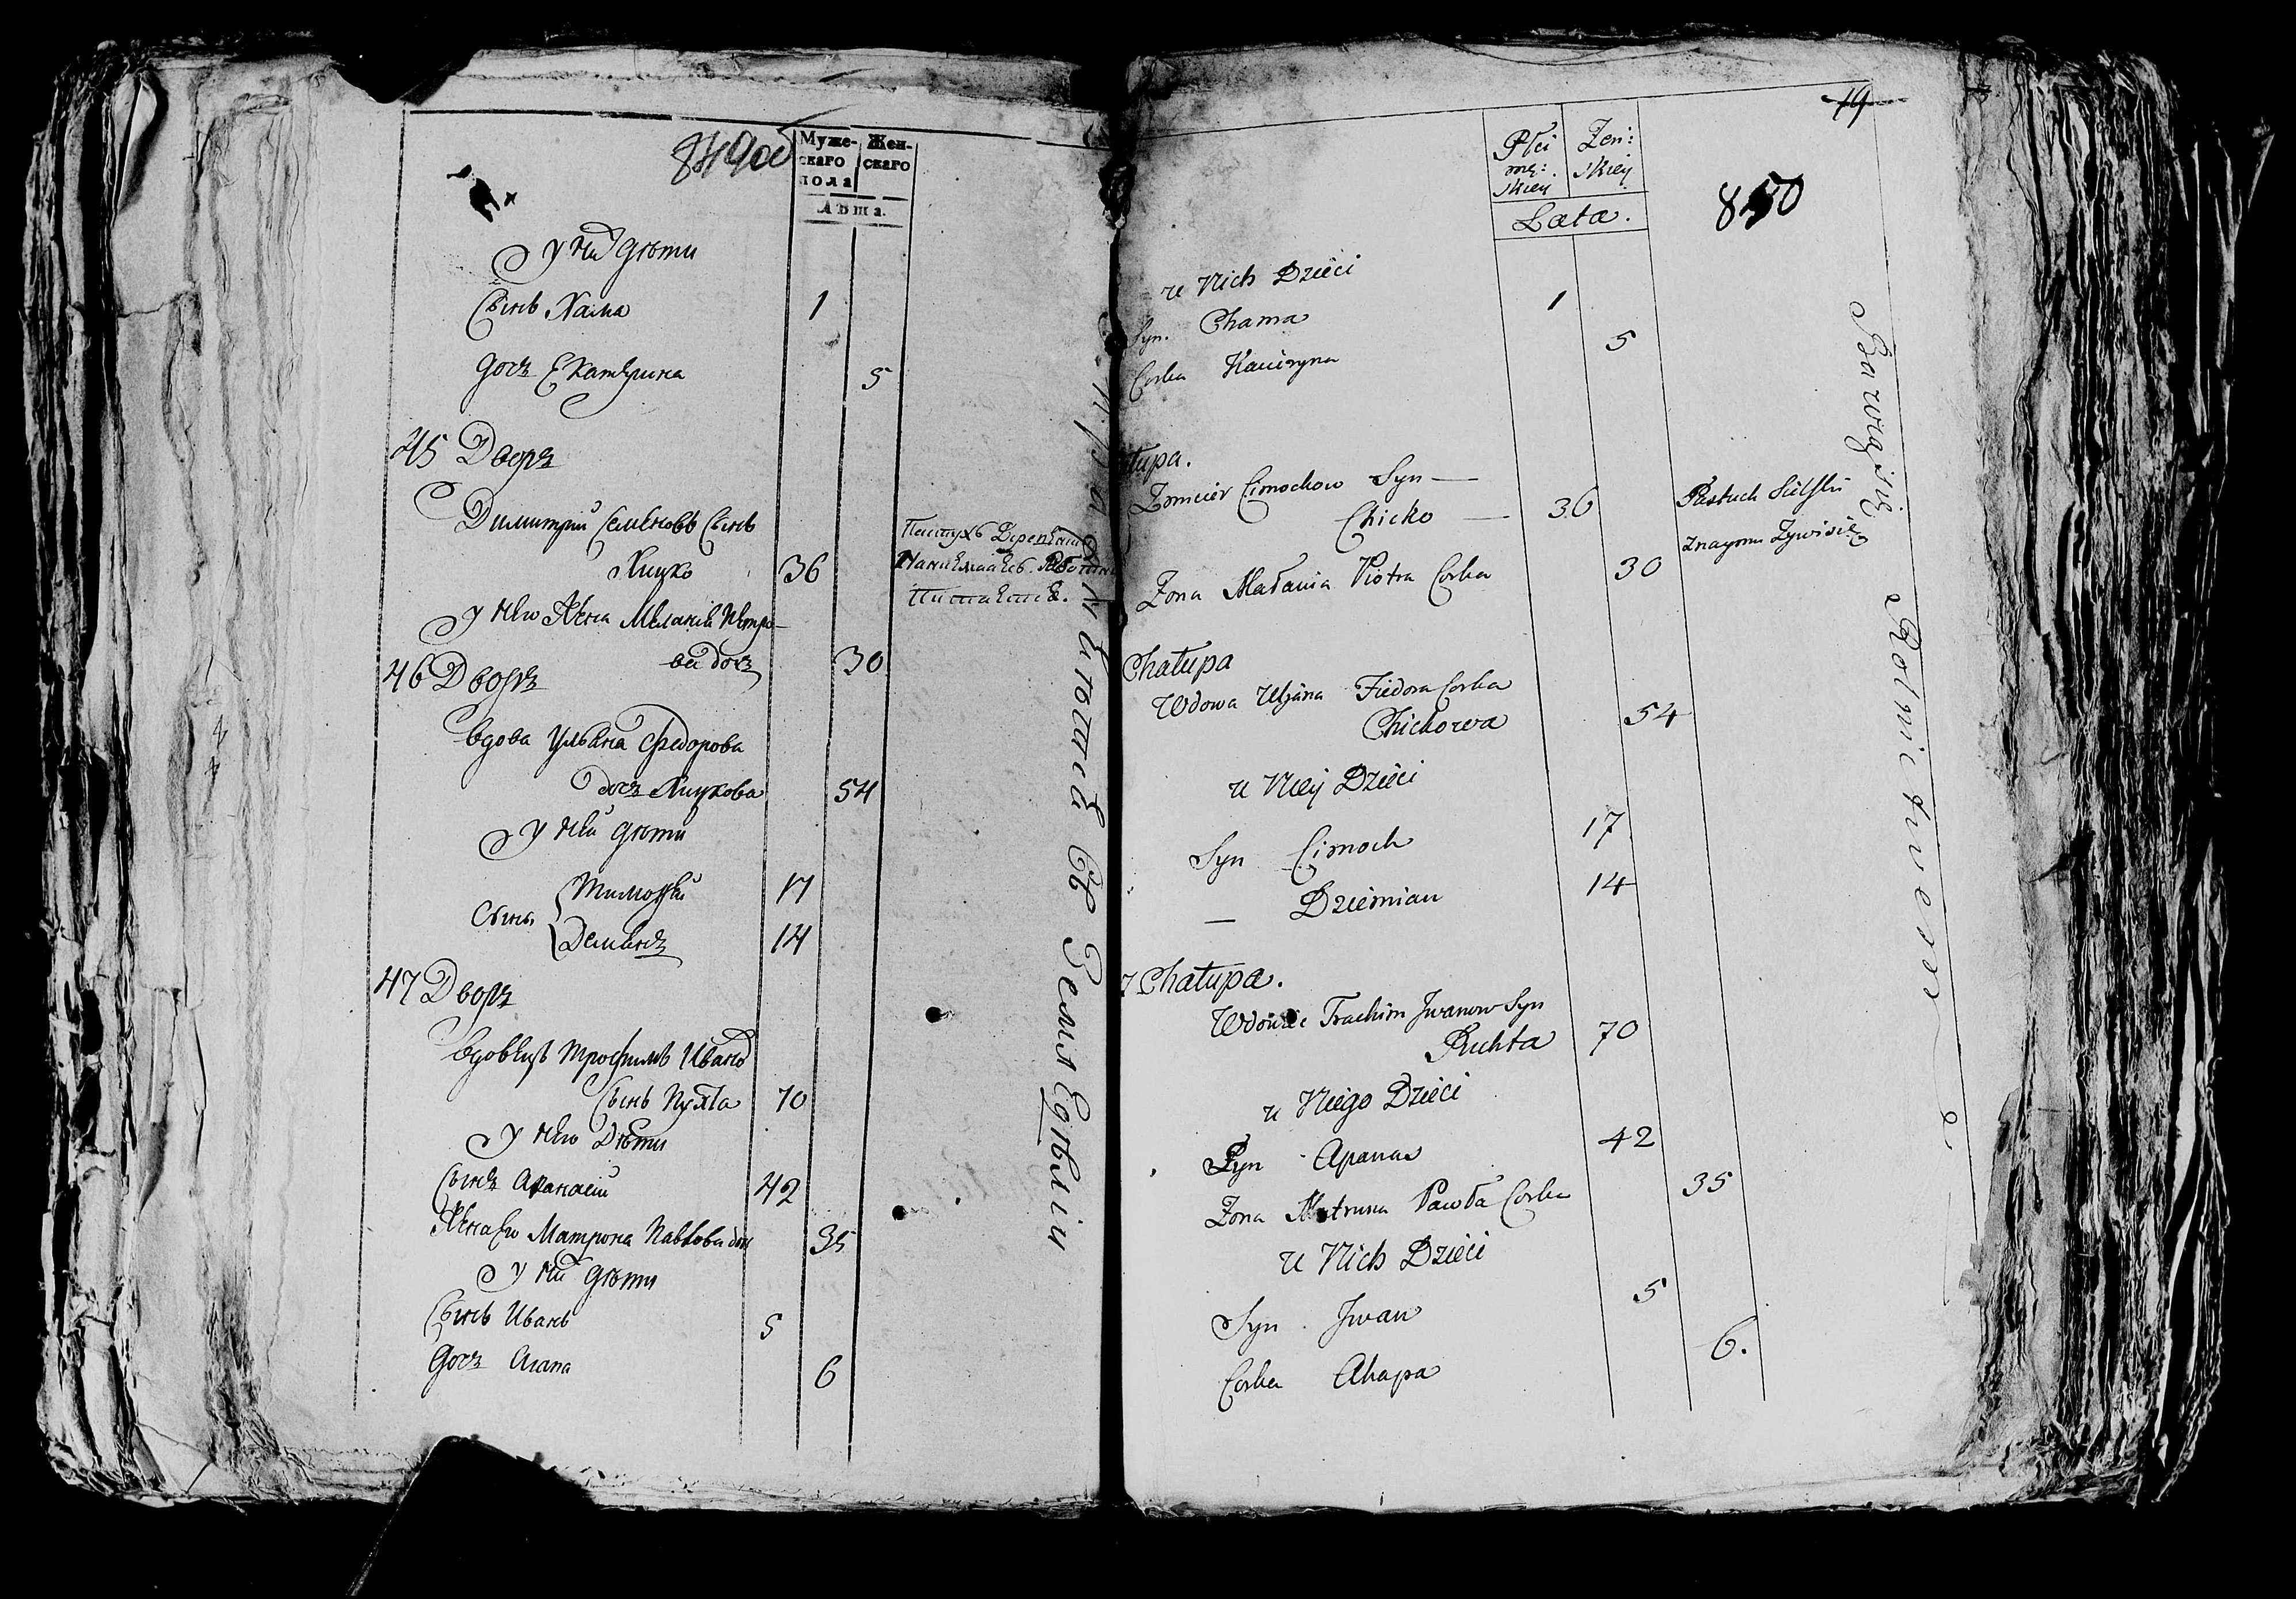 849об
Муже-
скаго
пола
Жен-
скаго
Лѣта.
У них Дѣти
Сынъ Хама 1
Дочь Екатерина 5
45 Дворъ
Димитрий Семеновъ Сынъ
Хицко 36
У него Жена Мелания Петро-
ва дочь 30
46 Дворъ
Вдова Ульяна Федорова
дочь Хицкова 54
У ней дѣти
Сынъ Тимофей 17
Демьянъ 14
47 Дворъ
Вдовецъ Трофимъ Иванов
Сынъ Пухта 70
У него Дѣти
Сынъ Афанасий 42
Жена Его Матрона Павлова доч
35
У них дѣти
Сынъ Иванъ 5
Дочь Агапа 6
Пастухъ
Питается Съ Земледѣлия
19
850
Płci
mę:
skiey
Zen:
skiey
Lata.
u Nich Dzieci
Syn. Chama 1
Corka Kacizyna 5
łupa.
Zmicier Cimochow Syn —
Chicko — 36
Zona Małania Piotra Corka 30
Pastuch Sielski
Znaymu Zywi się
Chałupa
Wdowa Uljana Fiedora Corka
Chickowa 54
u Niey Dzieci
Syn Cimoch 17
— Dziemian 14
7 Chałupa.
Wdowiec Trachim Jwanow Syn
Puhta 70
u Niego Dzieci
Syn Apanas 42
Zona Matruna Pawła Corka 35
u Nich Dzieci
Syn Jwan 5
Corka Ahapa 6.
Bawią się Rolnictwem